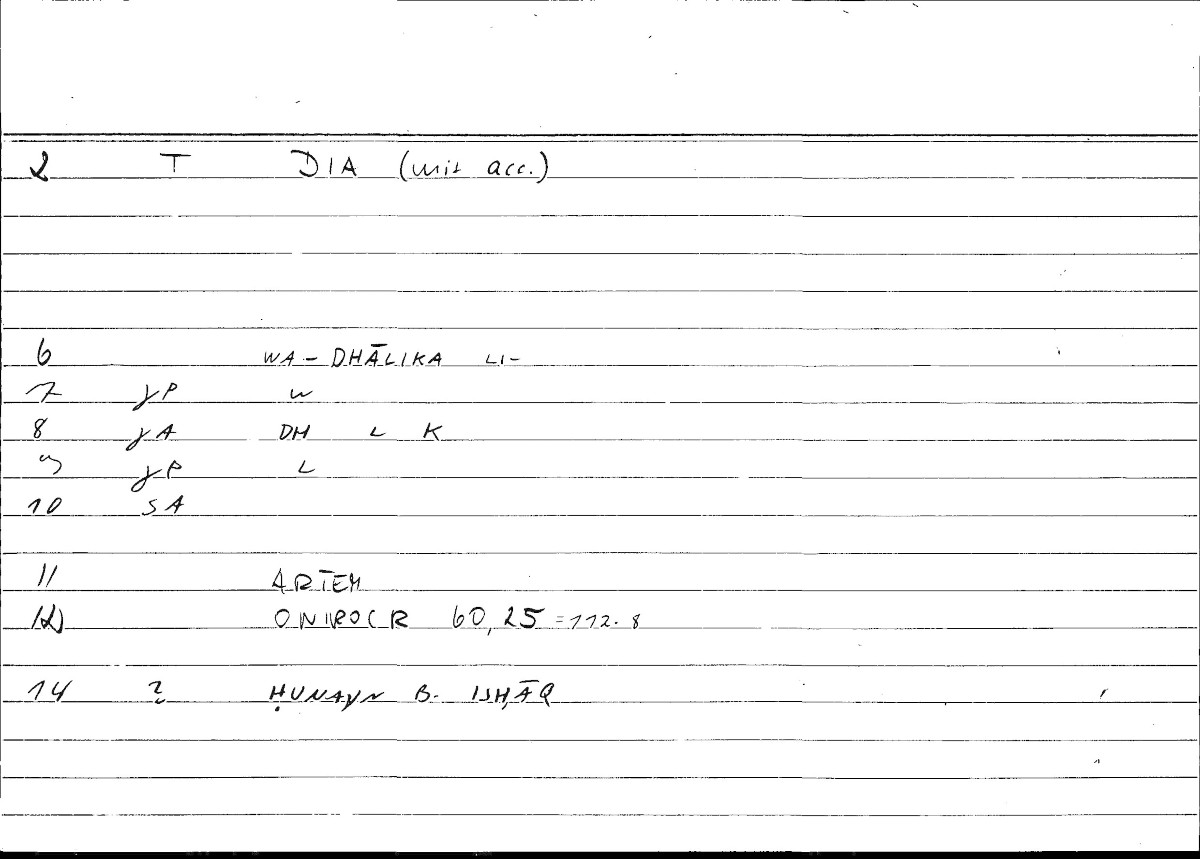 2 T DIA (mit acc.)
6 WA – DHĀLIKA LI–
7 γP W
8 γA DH L K
9 γP L
10 SA
11 ARTEM
12 ONIROCR 60,25 = 112.8
14 ? ḤUNAYN B. ISḤĀQ